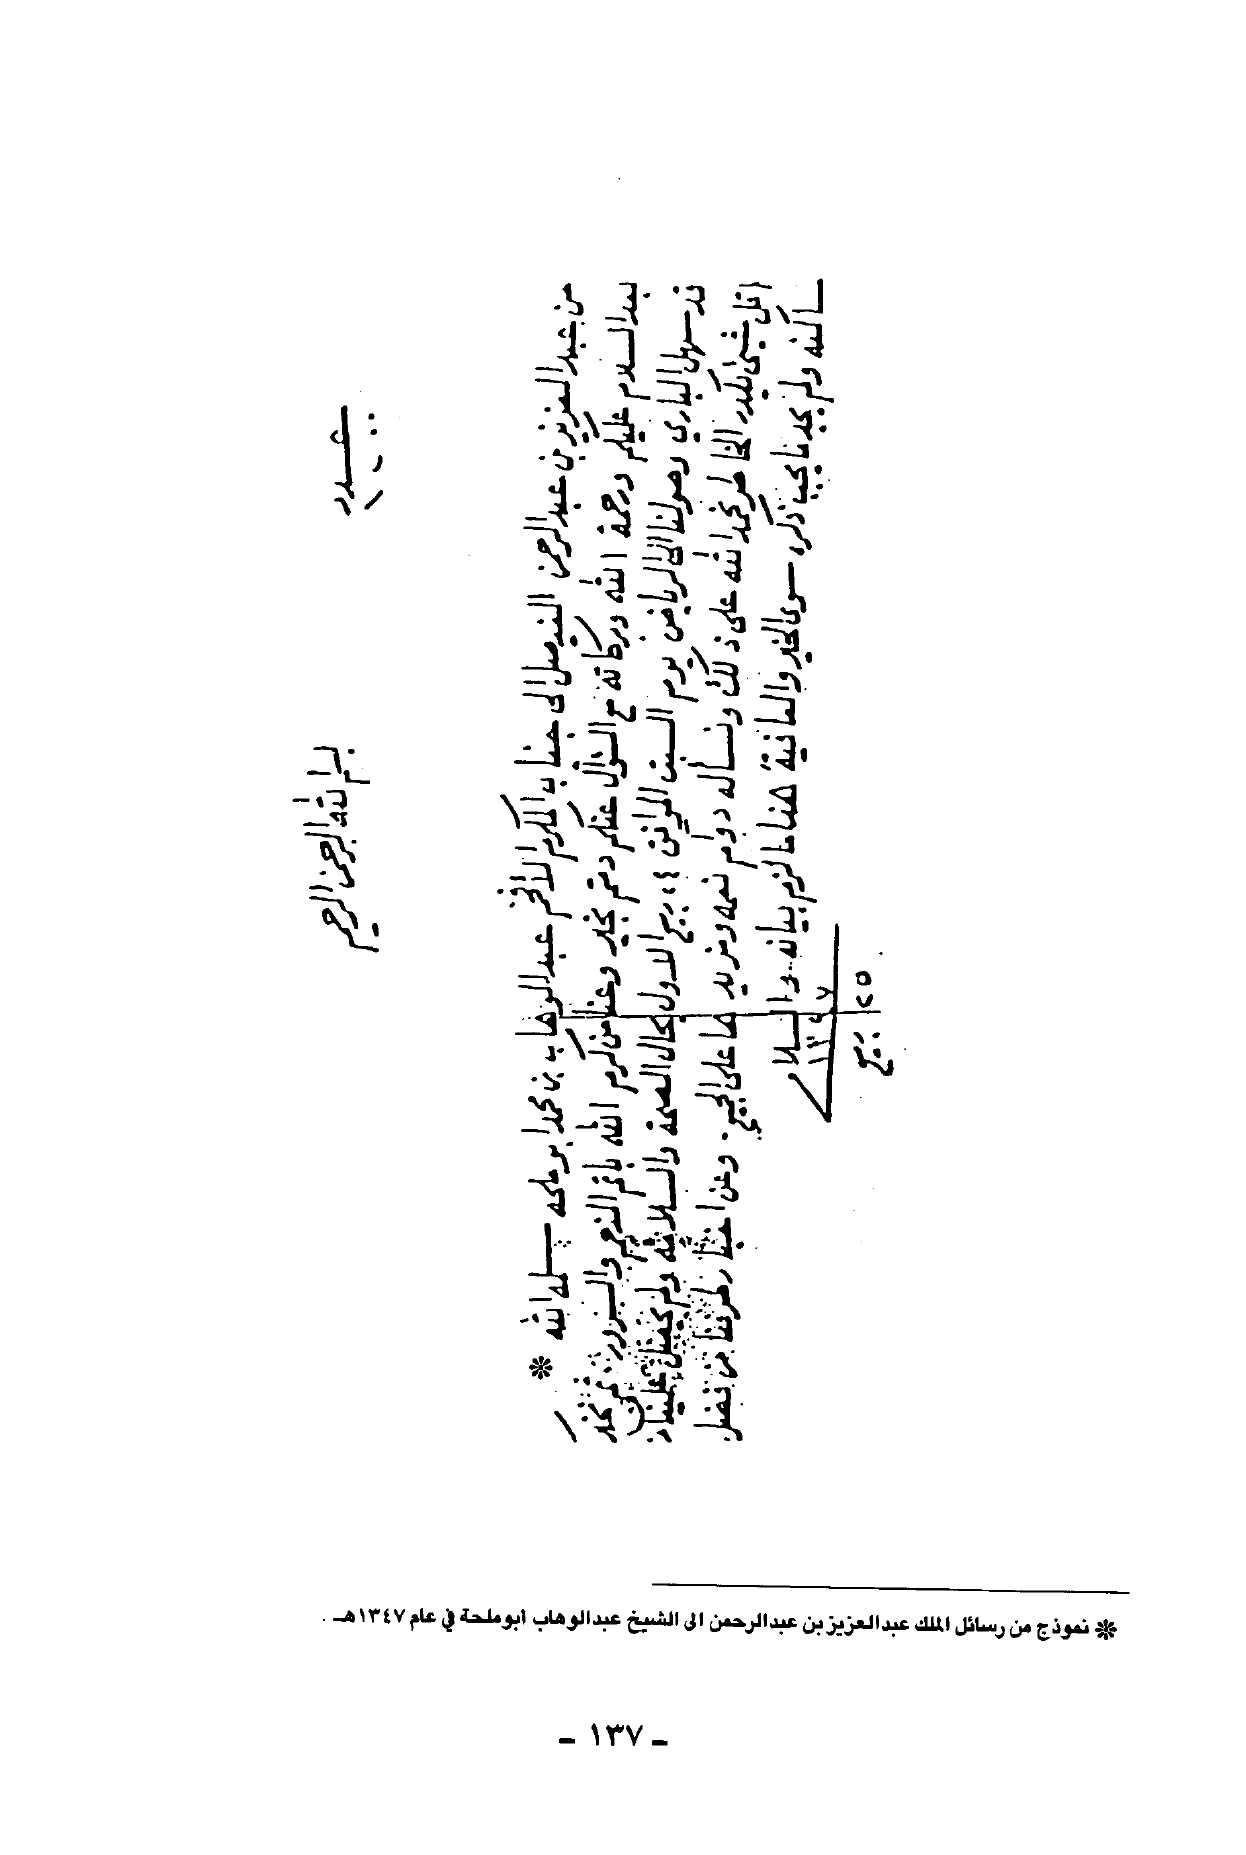 بسم الله الرحمن الرحيم
عدد
من عبد العزيز بن عبد الرحمن الفيصل الى جناب المكرم الافخم عبد الوهاب بن محمد ابو ملحه سلمه الله
بعد السلام عليكم ورحمة الله وبركاته مع السؤال عنكم دمتم بخير وعنا من كرم الله باتم النعم والسرور نخبركم
قد سهل الباري وصولنا الى الرياض يوم السبت الموافق ربيع الاول بحال الصحة والسلامة ولم يحصل علينا من
اقل شيئ يكدر الخاطر نحمد الله على ذلك ونسأله دوام نعمه ومزيدها على الجميع. وعن اخبار طرفنا من فضل
الله ساكنه ولم يجد ما يجب ذكره سوى الخير والعافية هذا ما لزم بيانه والسلام
١٣٤٧
٢٥ ربيع
❊ نموذج من رسائل الملك عبدالعزيز بن عبدالرحمن الى الشيخ عبدالوهاب أبوملحة في عام ١٣٤٧هـ .
- ١٣٧ -